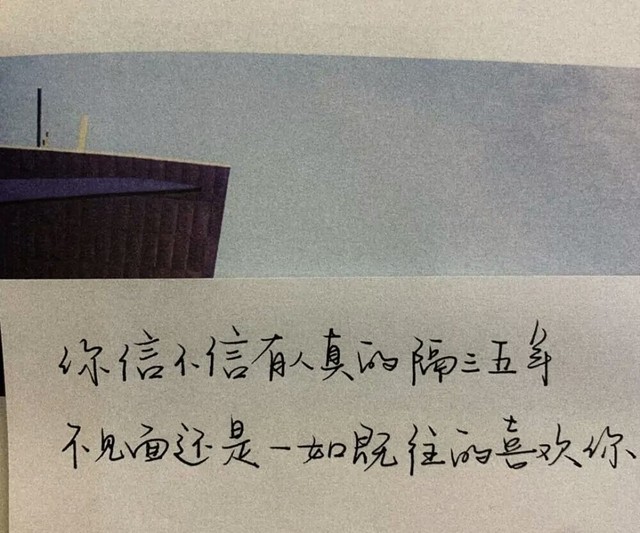 你信不信有人真的隔三五年
不见面还是一如既往的喜欢你